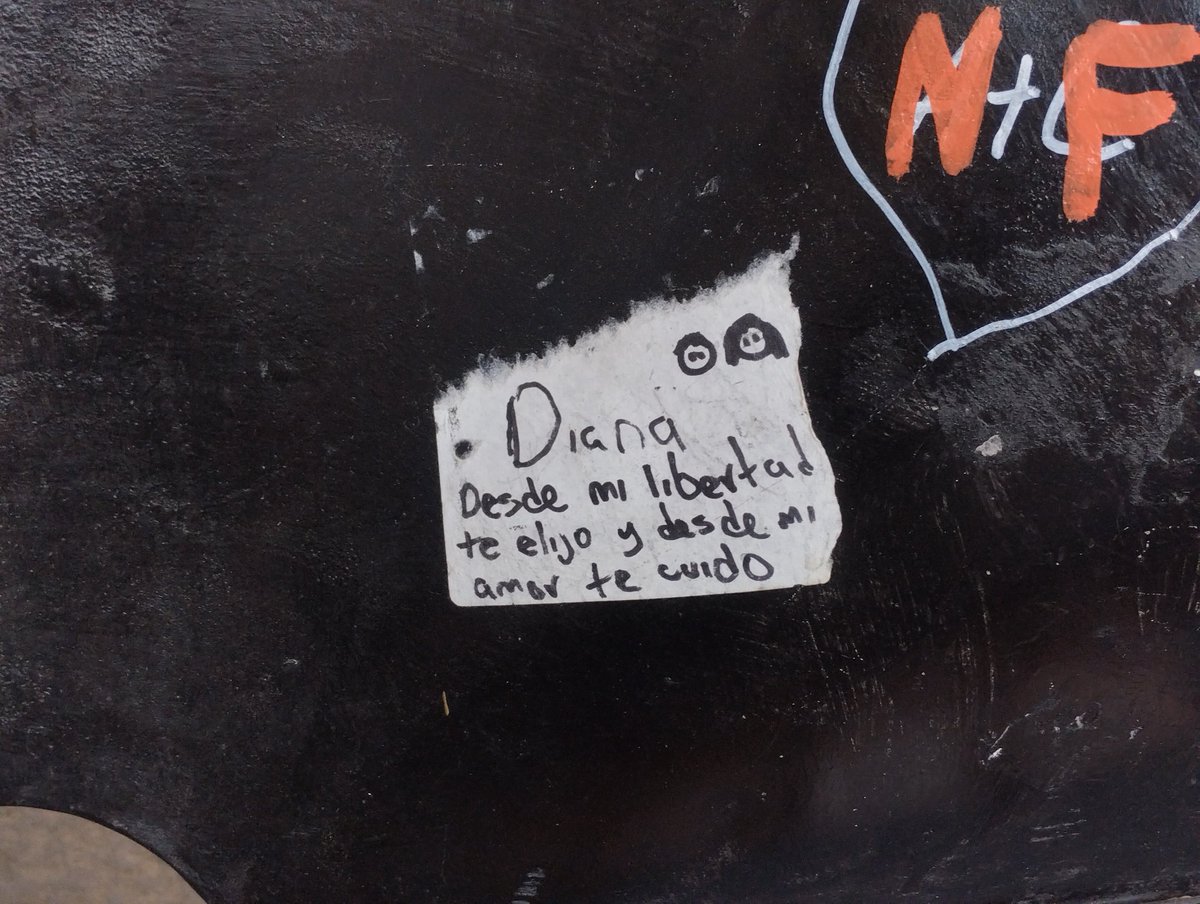 N+F
Diana
Desde mi libertad
te elijo y desde mi
amor te cuido